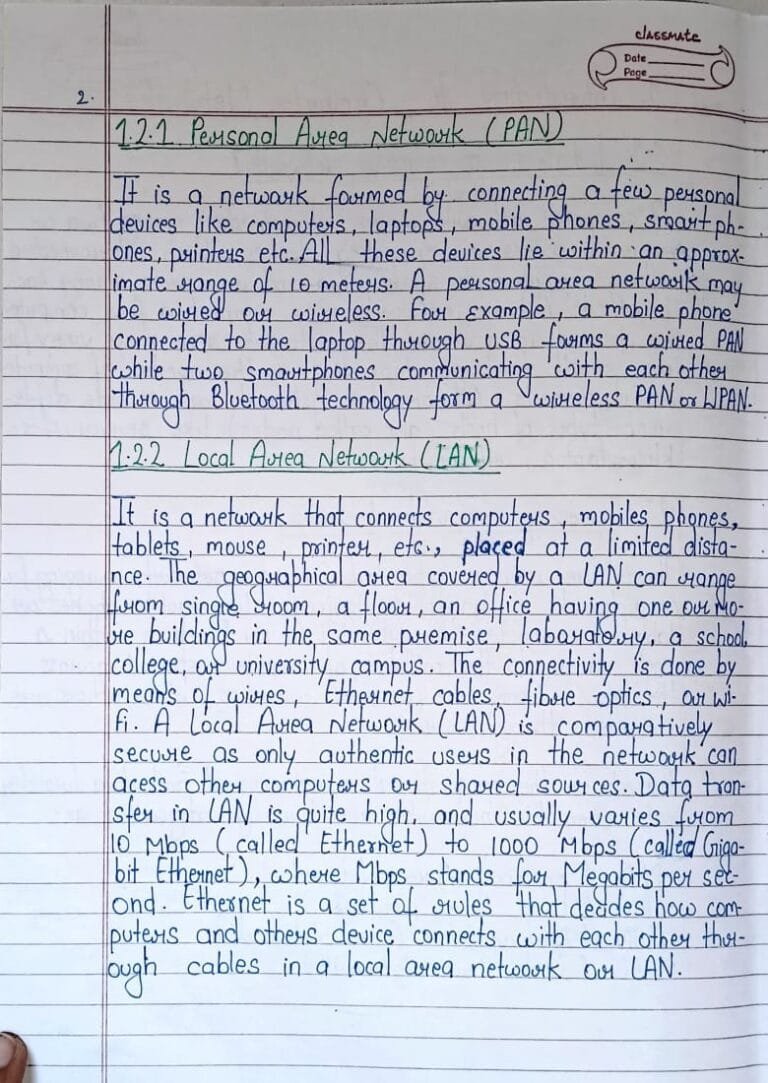 classmate
Date
Page
2.
1.2.1 Personal Area Network (PAN)
It is a network formed by connecting a few personal
devices like computers, laptops, mobile phones, smartph-
ones, printers etc. All these devices lie within an approx-
imate range of 10 meters. A personal area network may
be wired or wireless. For Example, a mobile phone
connected to the laptop through USB forms a wired PAN
while two smartphones communicating with each other
through Bluetooth technology form a wireless PAN or WPAN.
1.2.2 Local Area Network (LAN)
It is a network that connects computers, mobiles, phones,
tablets, mouse, printer, etc., placed at a limited dista-
nce. The geographical area covered by a LAN can range
from single room, a floor, an office having one or mo-
re buildings in the same premise, labaratory, a school,
college, or university campus. The connectivity is done by
means of wires, Ethernet cables, fibre optics, or wi-
fi. A Local Area Network (LAN) is comparatively
secure as only authentic users in the network can
acess other computers or shared sources. Data tran-
sfer in LAN is quite high, and usually varies from
10 Mbps (called Ethernet) to 1000 Mbps (called Giga-
bit Ethernet), where Mbps stands for Megabits per sec-
ond. Ethernet is a set of rules that decides how com-
puters and others device connects with each other thr-
ough cables in a local area network or LAN.